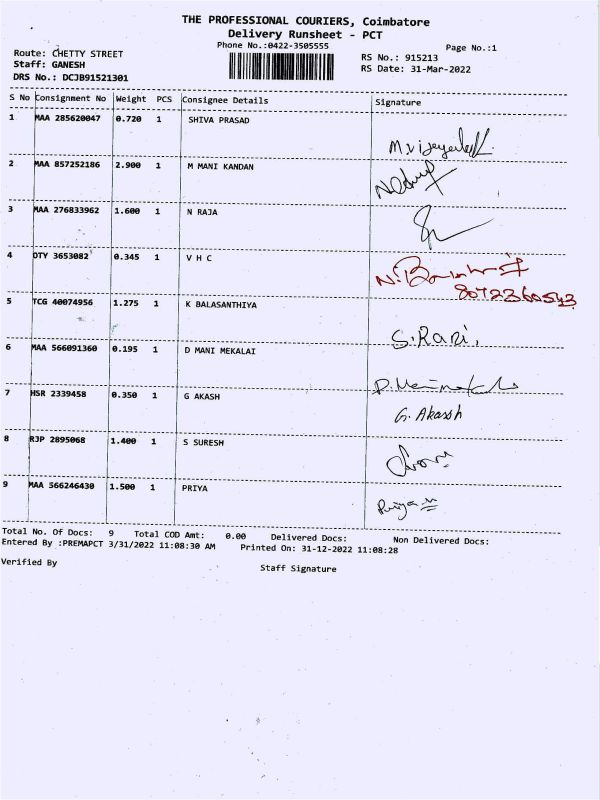 THE PROFESSIONAL COURIERS, Coimbatore
Delivery Runsheet - PCT
Phone No.:0422-3505555
Page No.:1
Route: CHETTY STREET
RS No.: 915213
Staff: GANESH
RS Date: 31-Mar-2022
DRS No.: DCJB91521301
S No Consignment No Weight PCS Consignee Details Signature
1 MAA 285620047 0.720 1 SHIVA PRASAD
2 MAA 857252186 2.900 1 M MANI KANDAN
3 MAA 276833962 1.600 1 N RAJA
4 DTY 3653082 0.345 1 V H C
5 TCG 40074956 1.275 1 K BALASANTHIYA
S. Rani,
6 MAA 566091360 0.195 1 D MANI MEKALAI
7 HSR 2339458 0.350 1 G AKASH
G. Akassh
8 RJP 2895068 1.400 1 S SURESH
9 MAA 566246430 1.500 1 PRIYA
Total No. Of Docs: 9 Total COD Amt: 0.00 Delivered Docs: Non Delivered Docs:
Entered By :PREMAPCT 3/31/2022 11:08:30 AM Printed On: 31-12-2022 11:08:28
Verified By
Staff Signature